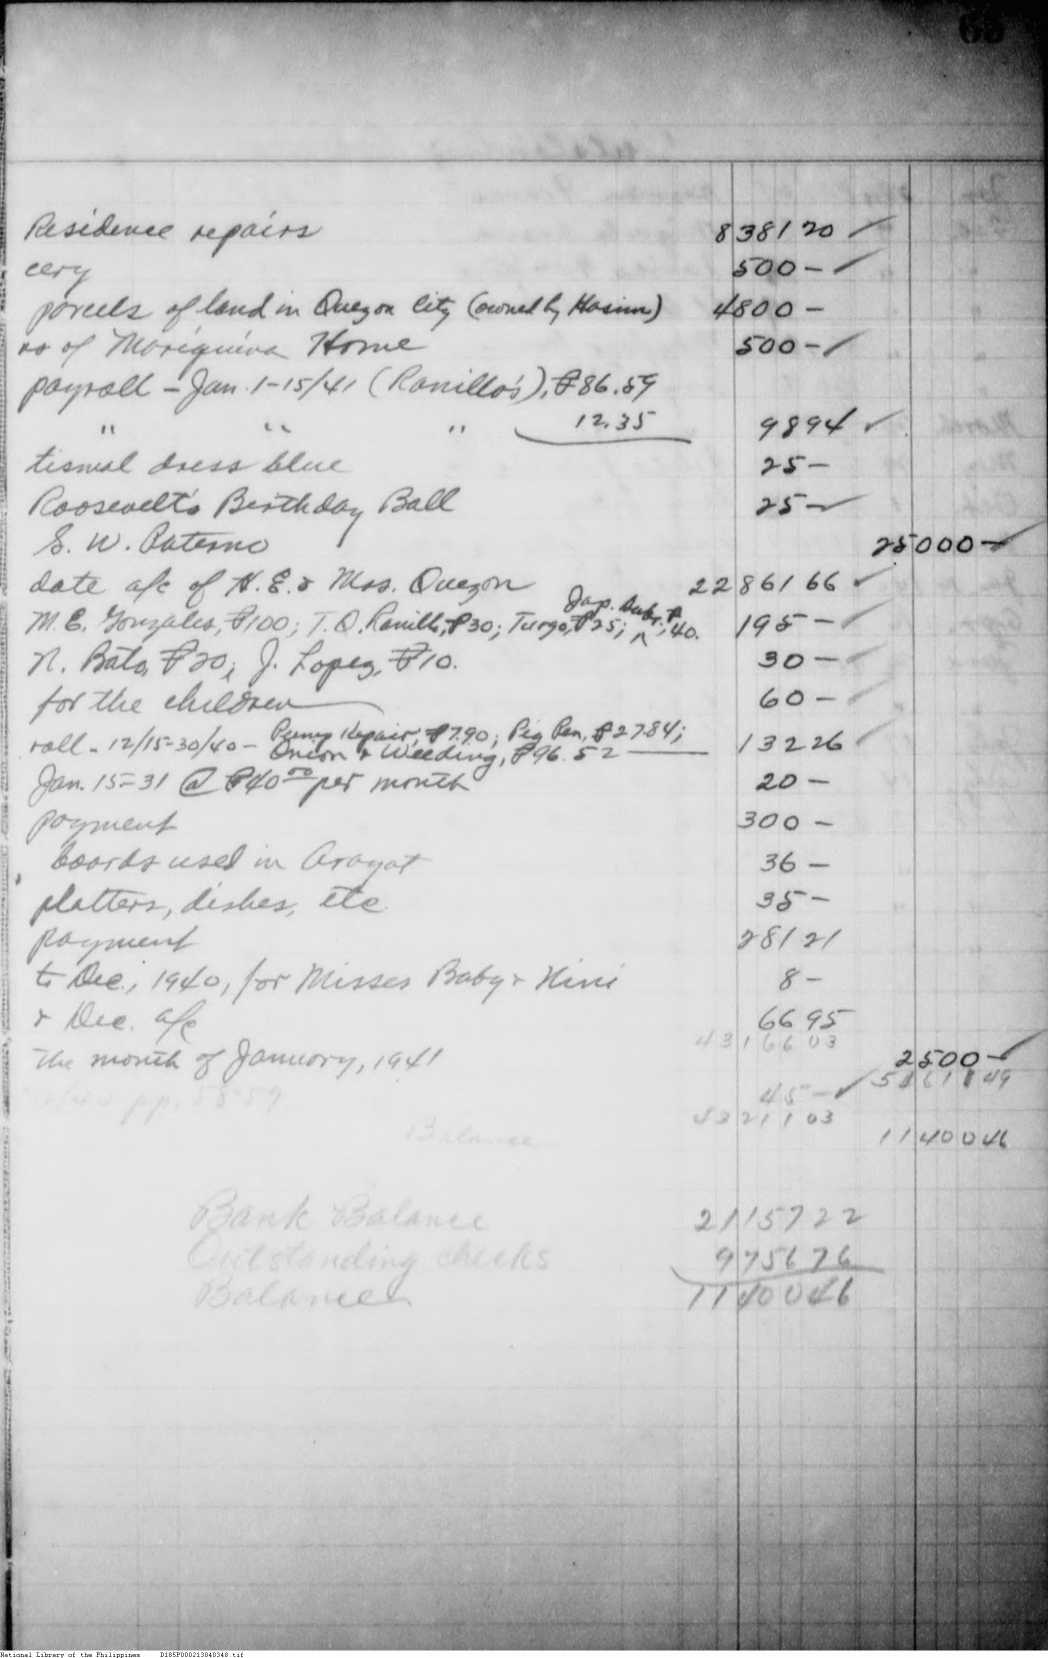 65
Residence repairs 8 381 20 ✓
cery 500 – ✓
parcels of land in Quezon City (owned by Hasim) 4800 –
rs of Mariquina Home 500 – ✓
payroll – Jan. 1-15/41 (Ranillo's), ₱86.59
" " " 12.35 98 94 ✓
tismal dress blue 25 –
Roosevelt's Birthday Ball 25 – ✓
S. W. Paterno 25000 – ✓
date a/c of H.E. & Mrs. Quezon 22861 66 ✓
Jap. Subs. ₱
M.E. Gonzales, ₱100; T.O. Ranillo, ₱30; Turgo, ₱25; ^ 40. 195 – ✓
N. Bato, ₱20; J. Lopez, ₱10. 30 – ✓
for the children 60 – ✓
Pump Repair, ₱7.90; Pig Pen, ₱27.84;
roll – 12/15-30/40 – Onion & Weeding, ₱96.52 132 26 ✓
Jan. 15-31 @ ₱40.00 per month 20 –
payment 300 –
boards used in Arayat 36 –
platters, dishes, etc. 35 –
payment 281 21
to Dec., 1940, for Misses Baby & Nini 8 –
& Dec. a/c 66 95
43166 03
the month of January, 1941 2500 – ✓
pp. 58-59 45 – ✓ 51611 49
43211 03
Balance 11400 46
Bank Balance 21157 22
Outstanding checks 9756 76
Balance 11400 46
National Library of the Philippines D185P000213040340.tif